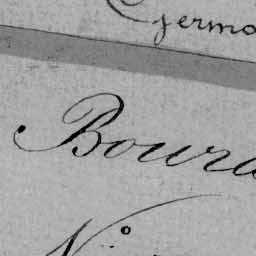 Germa
Boura